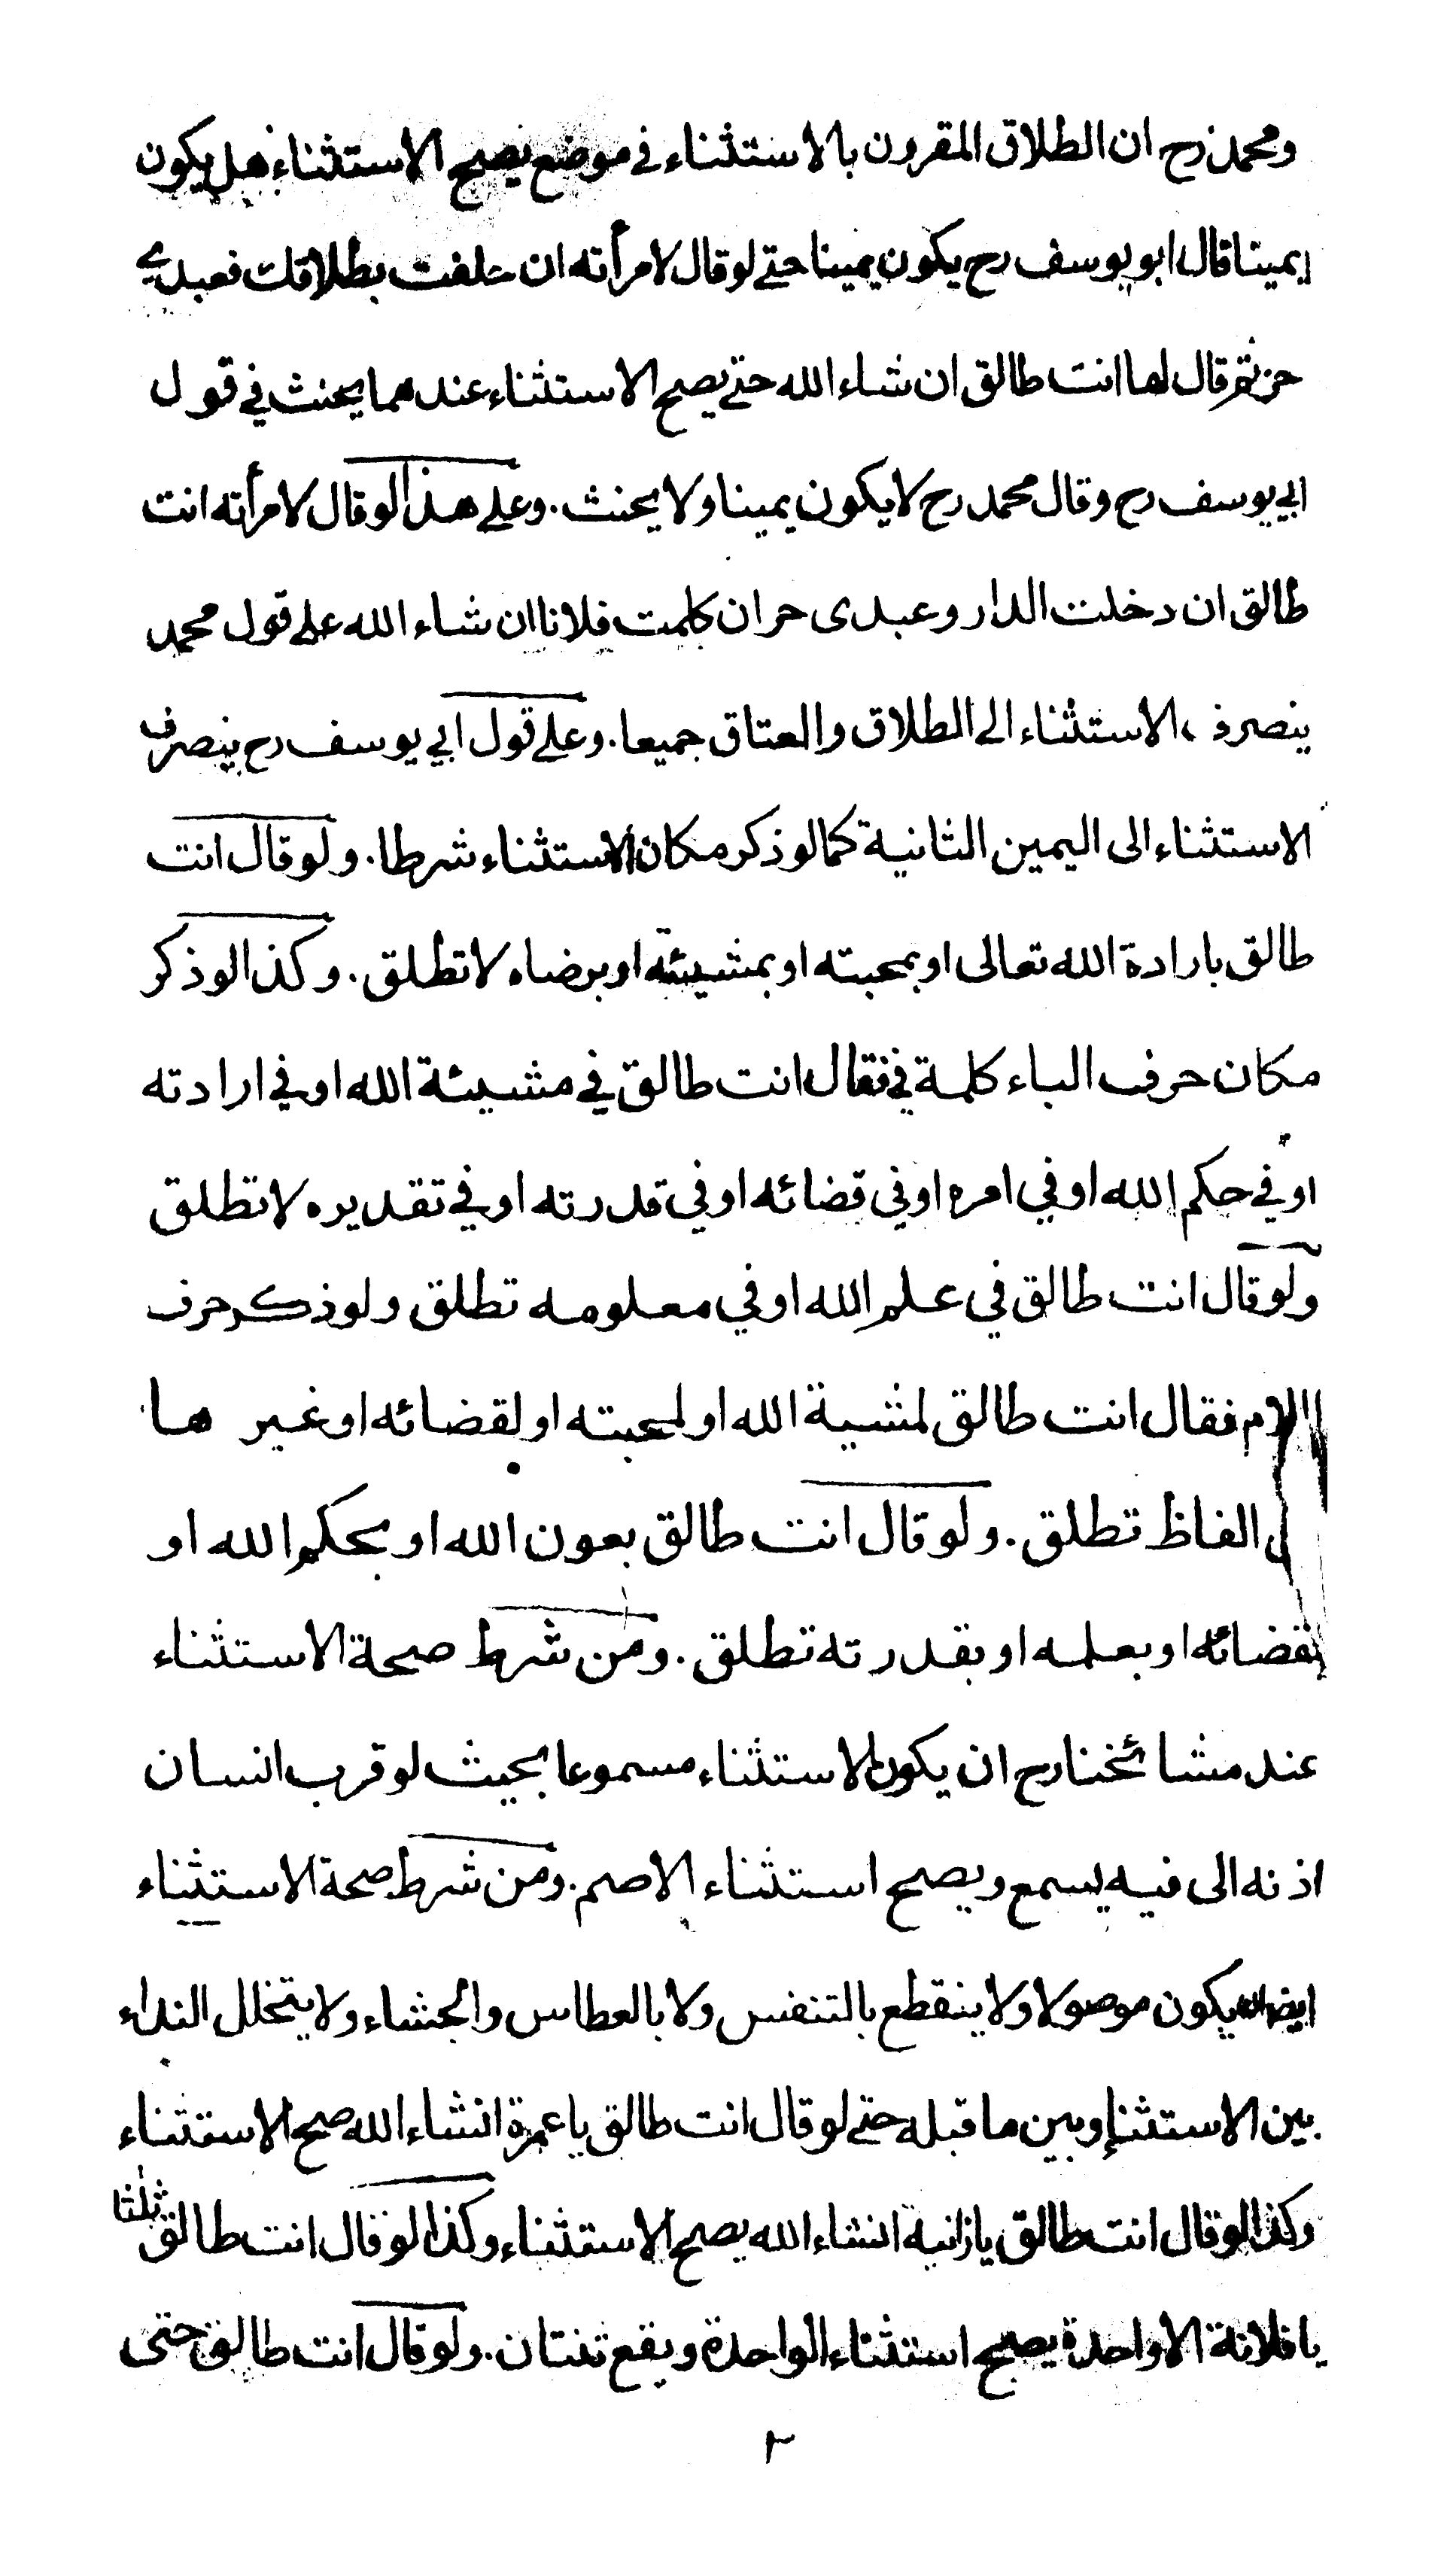 ومحمد رح ان الطلاق المقرون بالاستثناء في موضع يصح الاستثناء هل يكون
يمينا قال ابو يوسف رح يكون يمينا حتى لو قال لامرأته ان حلفت بطلاقك فعبدي
حر ثم قال لها انت طالق ان شاء الله حتى يصح الاستثناء عندهما يحنث في قول
ابي يوسف رح وقال محمد رح لا يكون يمينا ولا يحنث. وعلى هذا لو قال لامرأته انت
طالق ان دخلت الدار وعبدى حر ان كلمت فلانا ان شاء الله على قول محمد
ينصرف الاستثناء الى الطلاق والعتاق جميعا. وعلى قول ابي يوسف رح ينصرف
الاستثناء الى اليمين الثانية كما لو ذكر مكان الاستثناء شرطا. ولو قال انت
طالق بارادة الله تعالى او بمحبته او بمشيئته او برضاه لا تطلق. وكذا لو ذكر
مكان حرف الباء كلمة في فقال انت طالق في مشيئة الله او في ارادته
او في حكم الله او في امره او في قضائه او في قدرته او في تقديره لا تطلق
ولو قال انت طالق في علم الله او في معلومه تطلق ولو ذكر حرف
اللام فقال انت طالق لمشية الله او لمحبته او لقضائه او غير ها
الفاظ تطلق. ولو قال انت طالق بعون الله او بحكم الله او
بقضائه او بعلمه او بقدرته تطلق. ومن شرط صحة الاستثناء
عند مشائخنا رح ان يكون الاستثناء مسموعا بحيث لو قرب انسان
اذنه الى فيه يسمع ويصح استثناء الاصم. ومن شرط صحة الاستثناء
ايضا ان يكون موصولا ولا ينقطع بالتنفس ولا بالعطاس والجشاء ولا يتخلل النداء
بين الاستثناء وبين ما قبله حتى لو قال انت طالق يا عمرة انشاء الله صح الاستثناء
وكذا لو قال انت طالق يا زانية انشاء الله يصح الاستثناء وكذا لو قال انت طالق ثلثا
يا فلانة الا واحدة يصح استثناء الواحدة ويقع ثنتان. ولو قال انت طالق حتى
٢